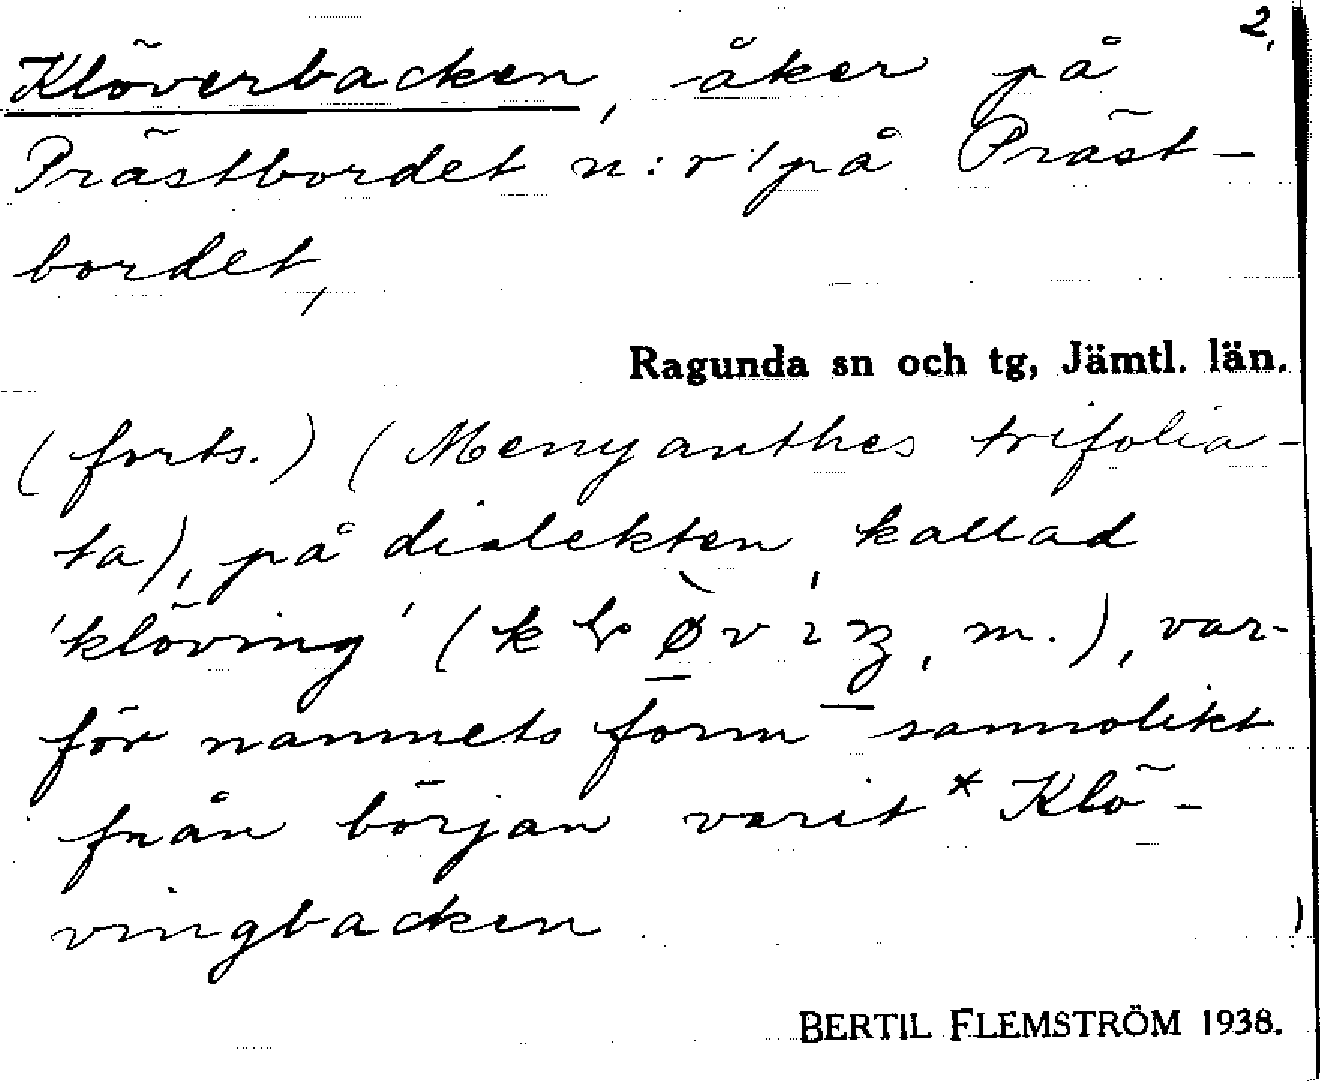 2.
Klöverbacken, åker på
Prästbordet n:r 1 på Präst-
bordet,
Ragunda sn och tg, Jämtl. län.
(forts.) (Menyanthes trifolia-
ta), på dialekten kallad
'klöving' (
m.), var-
för namnets form sannolikt
från början varit * Klö-
vingbacken
BERTIL FLEMSTRÖM 1938.